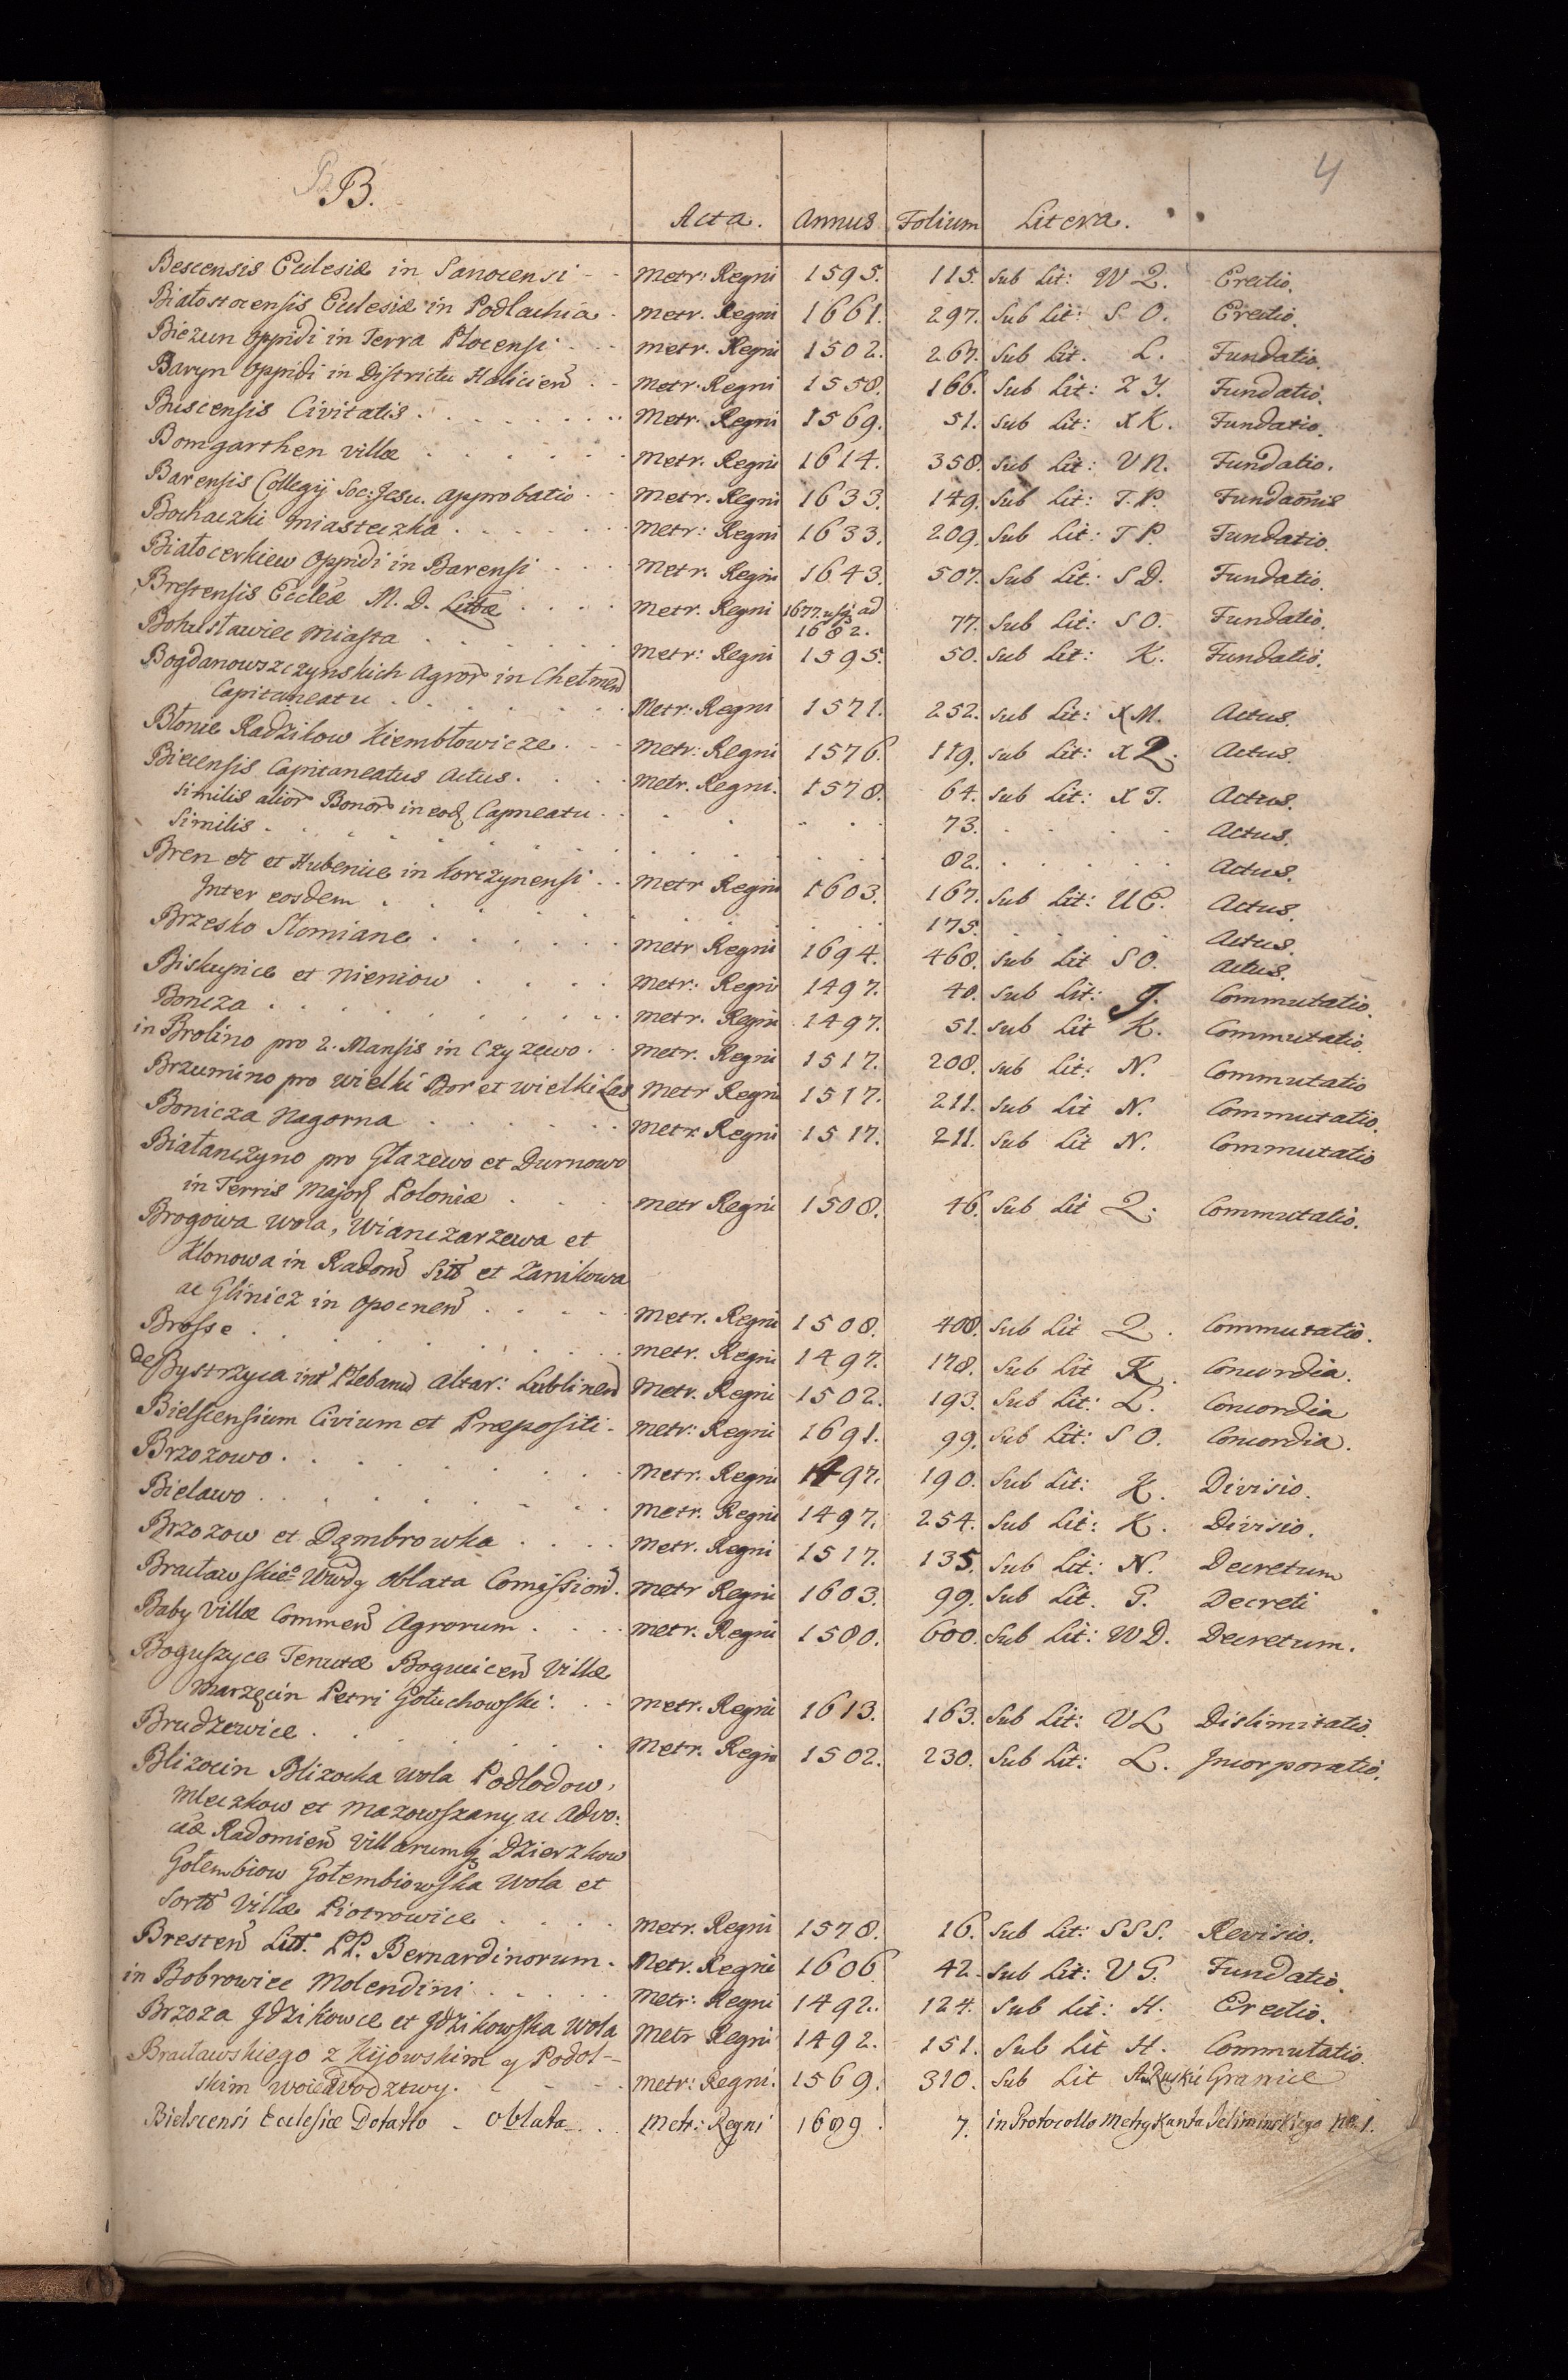 4
B.
Acta. Annus Folium Litera.
Bescensis Eclesiæ in Sanocensi - - Metr: Regni 1595. 115. Sub Lit: W Q. Erectio.
Białostocensis Eclesiæ in Podlachia. Metr. Regni 1661. 297. Sub Lit: S O. Erectio.
Biezun Oppidi in Terra Plocensi - - Metr. Regni 1502. 267. Sub Lit. L. Fundatio.
Baryn Oppidi in Districtu Halicien . - Metr. Regni 1558. 166. Sub Lit: Z Y. Fundatio.
Buscensis Civitatis . . . . . . Metr. Regni 1569. 51. Sub Lit: X K. Fundatio.
Bomgarthen villæ . . . . . Metr. Regni 1614. 358. Sub Lit: V N. Fundatio.
Barensis Collegij Soc: Jesu. approbatio . . Metr. Regni 1633. 149. Sub Lit: T. P. Fundaōnis
Bochaczki Miasteczka . . . . . . Metr: Regni 1633. 209. Sub Lit: T P. Fundatio.
Białocerkiew Oppidi in Barensi . . . Metr. Regni 1643. 507. Sub Lit: S D. Fundatio.
Brestensis Eccleæ M. D. Littæ . . . . Metr. Regni 1677. usq ad
1682. 77. Sub Lit: S O. Fundatio.
Bohusławiec Miasta . . . . . . Metr: Regni 1595. 50. Sub Lit: K. Fundatio.
Bogdanowszczynskich Agror in Chełmen
Capitaneatu . . . . . . Metr: Regni 1571. 252. Sub Lit: X M. Actus.
Błonie Radzikow Kiembłowicze . . - Metr: Regni 1576. 119. Sub Lit: X Q. Actus.
Biecensis Capitaneatus Actus . . . . Metr. Regni. 1578. 64. Sub Lit: X T. Actus.
Similis alior Bonor in eod Capneatu . . . . . . 73. . . . . Actus.
Similis . . . . . . . . . . . . 82. . . . . . Actus.
Bren et et Hubenice in Korczynensi . . Metr Regni 1603. 167. Sub Lit: U E. Actus.
Inter eosdem . . . . . . . . . . . 175. . . . . Actus.
Brzesko Słomiane . . . . . . Metr Regni 1694. 468. Sub Lit S O. Actus.
Biskupice et Nieniow . . . . Metr: Regni 1497. 40. Sub Lit: J. Commutatio.
Boncza . . . . . . . . . Metr. Regni 1497. 51. Sub Lit K. Commutatio.
in Brolino pro 2. Mansis in Czyzewo . . Metr. Regni 1517. 208. Sub Lit: N. Commutatio
Brzumino pro wielki Bor et wielki Las Metr Regni 1517. 211. Sub Lit N. Commutatio.
Bonicza Nagorna . . . . . . Metr. Regni 1517. 211. Sub Lit N. Commutatio
Białanczyno pro Głazewo et Durnowo
in Terris Major Poloniæ . . . Metr Regni 1508. 46. Sub Lit Q. Commutatio.
Brogowa Wola, Wianczarzewa et
Klonowa in Radom Sitt et Zanikowa
ac Glinicz in Opocnen . . . . Metr. Regni 1508. 408. Sub Lit Q. Commutatio.
Brosse . . . . . . . . . Metr. Regni 1497. 178. Sub Lit K. Concordia.
de Bystrzyca int Plebanu Altar: Lublinen Metr. Regni 1502. 193. Sub Lit: L. Concordia
Bielscensium Civium et Præpositi - Metr: Regni 1691. 99. Sub Lit: S O. Concordia.
Brzozowo . . . . . . . . Metr. Regni 1497. 190. Sub Lit: K. Divisio.
Bielawo . . . . . . . . Metr. Regni 1497. 254. Sub Lit: K. Divisio.
Brzozow et Dąmbrowka . . . . Metr. Regni 1517. 135. Sub Lit: N. Decretum
Bracławskieo Wwdy oblata Comission. Metr Regni 1603. 99. Sub Lit. G. Decreti
Baby Villæ Commen Agrorum . . . . Metr. Regni 1580. 600. Sub Lit: W D. Decretum.
Boguszyce Tenutæ Bogucicen Villæ
Marzęcin Petri Gołuchowski . . - Metr. Regni 1613. 163. Sub Lit: V L Dislimitatio.
Brudzewice . . . . . . . . Metr. Regni 1502. 230. Sub Lit: L. Incorporatio.
Blizocin Blizocka Wola Podlodow,
Mleczkow et Mazowszany ac Advo:
ciæ Radomien Villarumq Dzierzkow
Gołembiow Gołembiowska Wola et
Sortt Villæ Piotrowice . . . . Metr. Regni 1578. 16. Sub Lit: S S S. Revisio.
Bresten Litt. PP. Bernardinorum. Metr. Regni 1606 42. Sub Lit: V G. Fundatio.
in Bobrowice Molendini . . . . . Metr: Regni 1492. 124. Sub Lit: H. Erectio.
Brzoza Jdzikowce et Jdzikowska Wola Metr Regni 1492. 151. Sub Lit H. Commutatio
Bracławskiego z Kijowskim y Podol-
skim Woiewodztwy. . - - - Metr: Regni. 1569. 310. Sub Lit A Ruski Granice
Bielscensi Eclesiæ Dotatio - Oblata . . Metr: Regni 1689. 7. in Protocollo Metrykanta Selimuskiego No. 1.